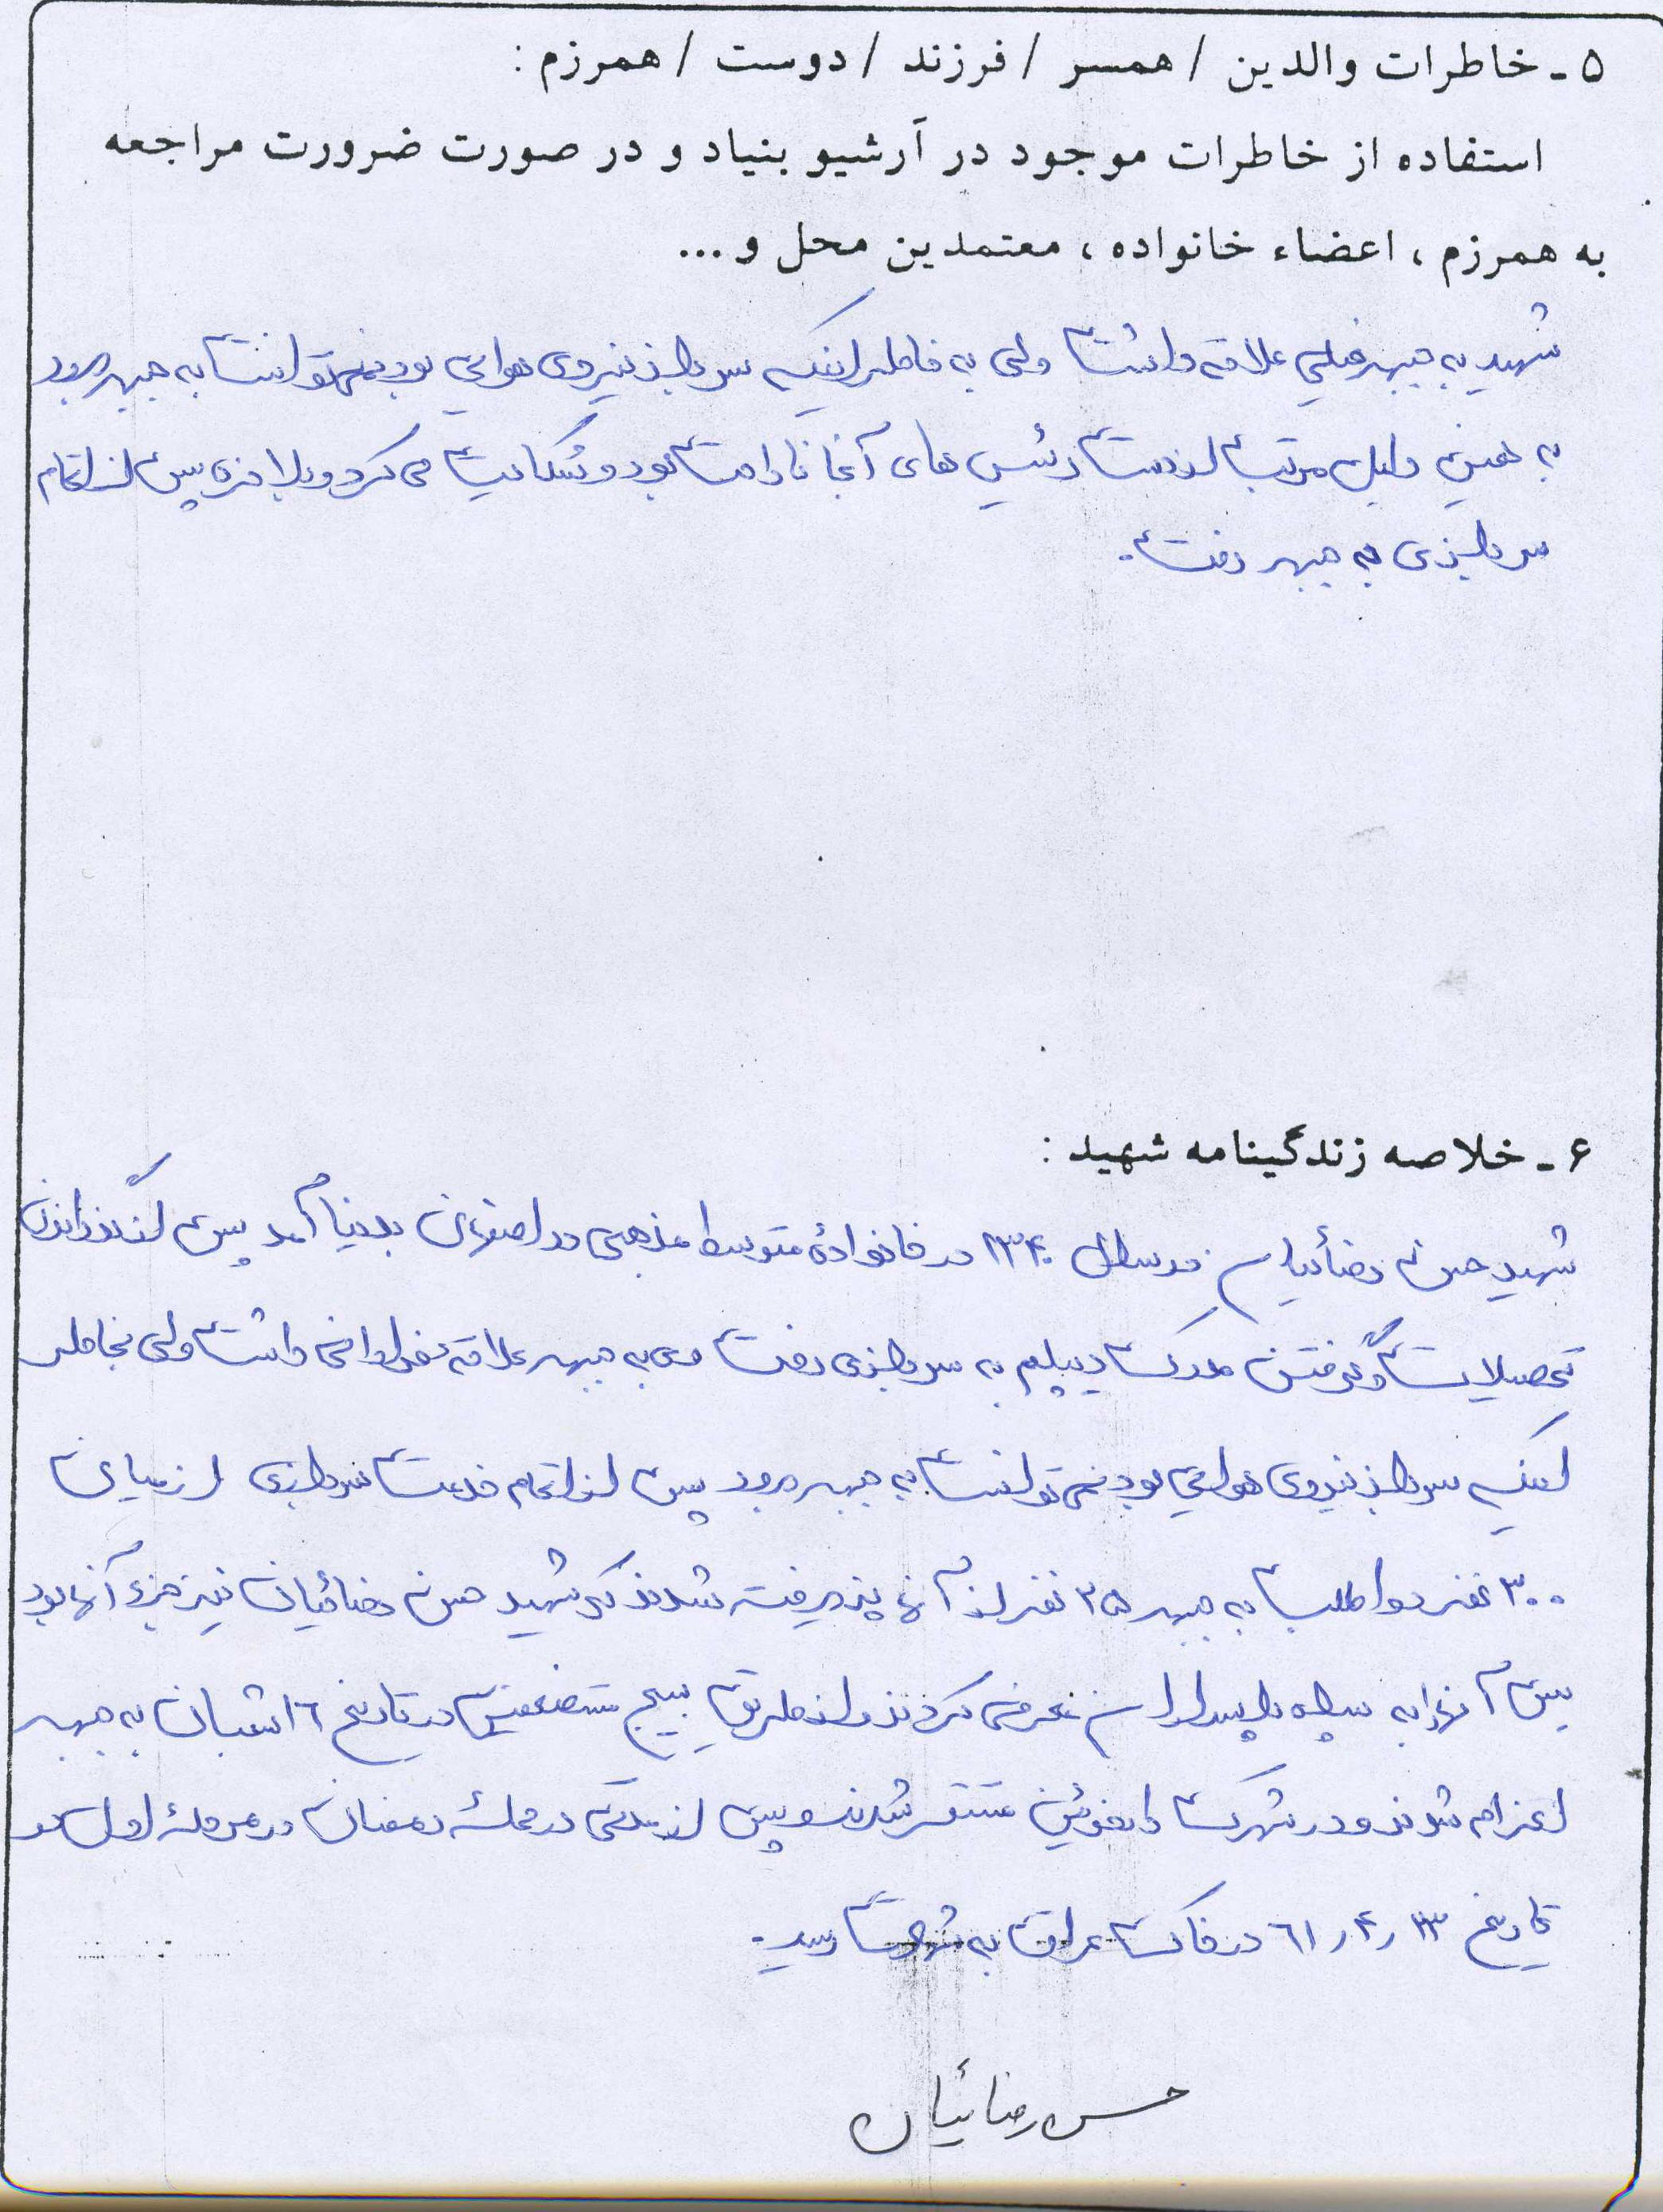 ۵ ـ خاطرات والدین / همسر / فرزند / دوست / همرزم :
استفاده از خاطرات موجود در آرشیو بنیاد و در صورت ضرورت مراجعه
به همرزم ، اعضاء خانواده ، معتمدین محل و ...
شهید به جبهه خیلی علاقه داشت ولی به خاطر اینکه سرباز نیروی هوایی بود نمی توانست به جبهه برود
به همین دلیل مرتب از دست رئیس های آنجا ناراحت بود و شکایت می کرد و بلاخره پس از اتمام
سربازی به جبهه رفت.
۶ ـ خلاصه زندگینامه شهید :
شهید حسن رضائیان در سال ۱۳۴۰ در خانوادهٔ متوسط مذهبی در اصفهان بدنیا آمد پس از گذراندن
تحصیلات و گرفتن مدرک دیپلم به سربازی رفت وی به جبهه علاقه فراوانی داشت ولی بخاطر
اینکه سرباز نیروی هوایی بود نمی توانست به جبهه برود پس از اتمام خدمت سربازی از میان
۳۰۰ نفر داوطلب به جبهه ۲۵ نفر از آنها پذیرفته شدند که شهید حسن رضائیان نیز جزء آنها بود
پس آنها را به سپاه پاسداران معرفی کردند و از طریق بسیج مستضعفین در تاریخ ۱۶ شعبان به جبهه
اعزام شدند و در شهرک دارخوئین مستقر شدند و پس از مدتی در حمله رمضان در مرحله اول در
تاریخ ۲۳ر۴ر۶۱ در خاک عراق به شهادت رسید.
حسن رضائیان